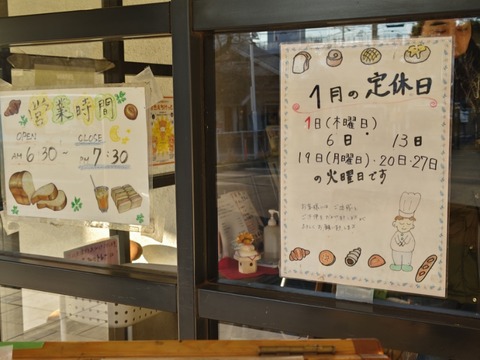 営業時間
OPEN
CLOSE
AM 6:30 - PM 7:30
1月の定休日
1日(木曜日)
6日・13日
19日(月曜日)・20日・27日
の火曜日です